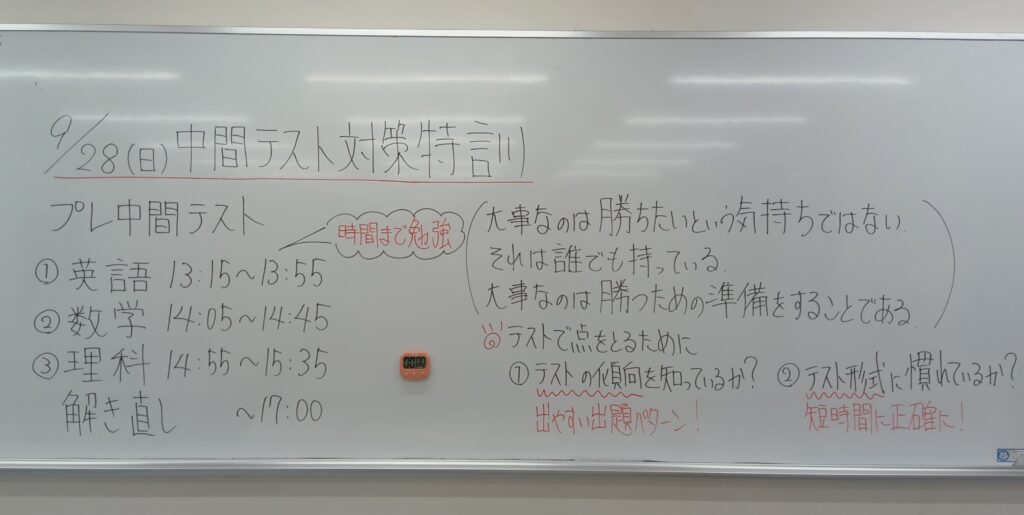 9/28(日)中間テスト対策特訓
プレ中間テスト
時間まで勉強
① 英語 13:15〜13:55
② 数学 14:05〜14:45
③ 理科 14:55〜15:35
解き直し 〜17:00
(大事なのは勝ちたいという気持ちではない.
それは誰でも持っている.
大事なのは勝つための準備をすることである.)
◎テストで点をとるために
① テストの傾向を知っているか?
出やすい出題パターン!
② テスト形式に慣れているか?
短時間に正確に!